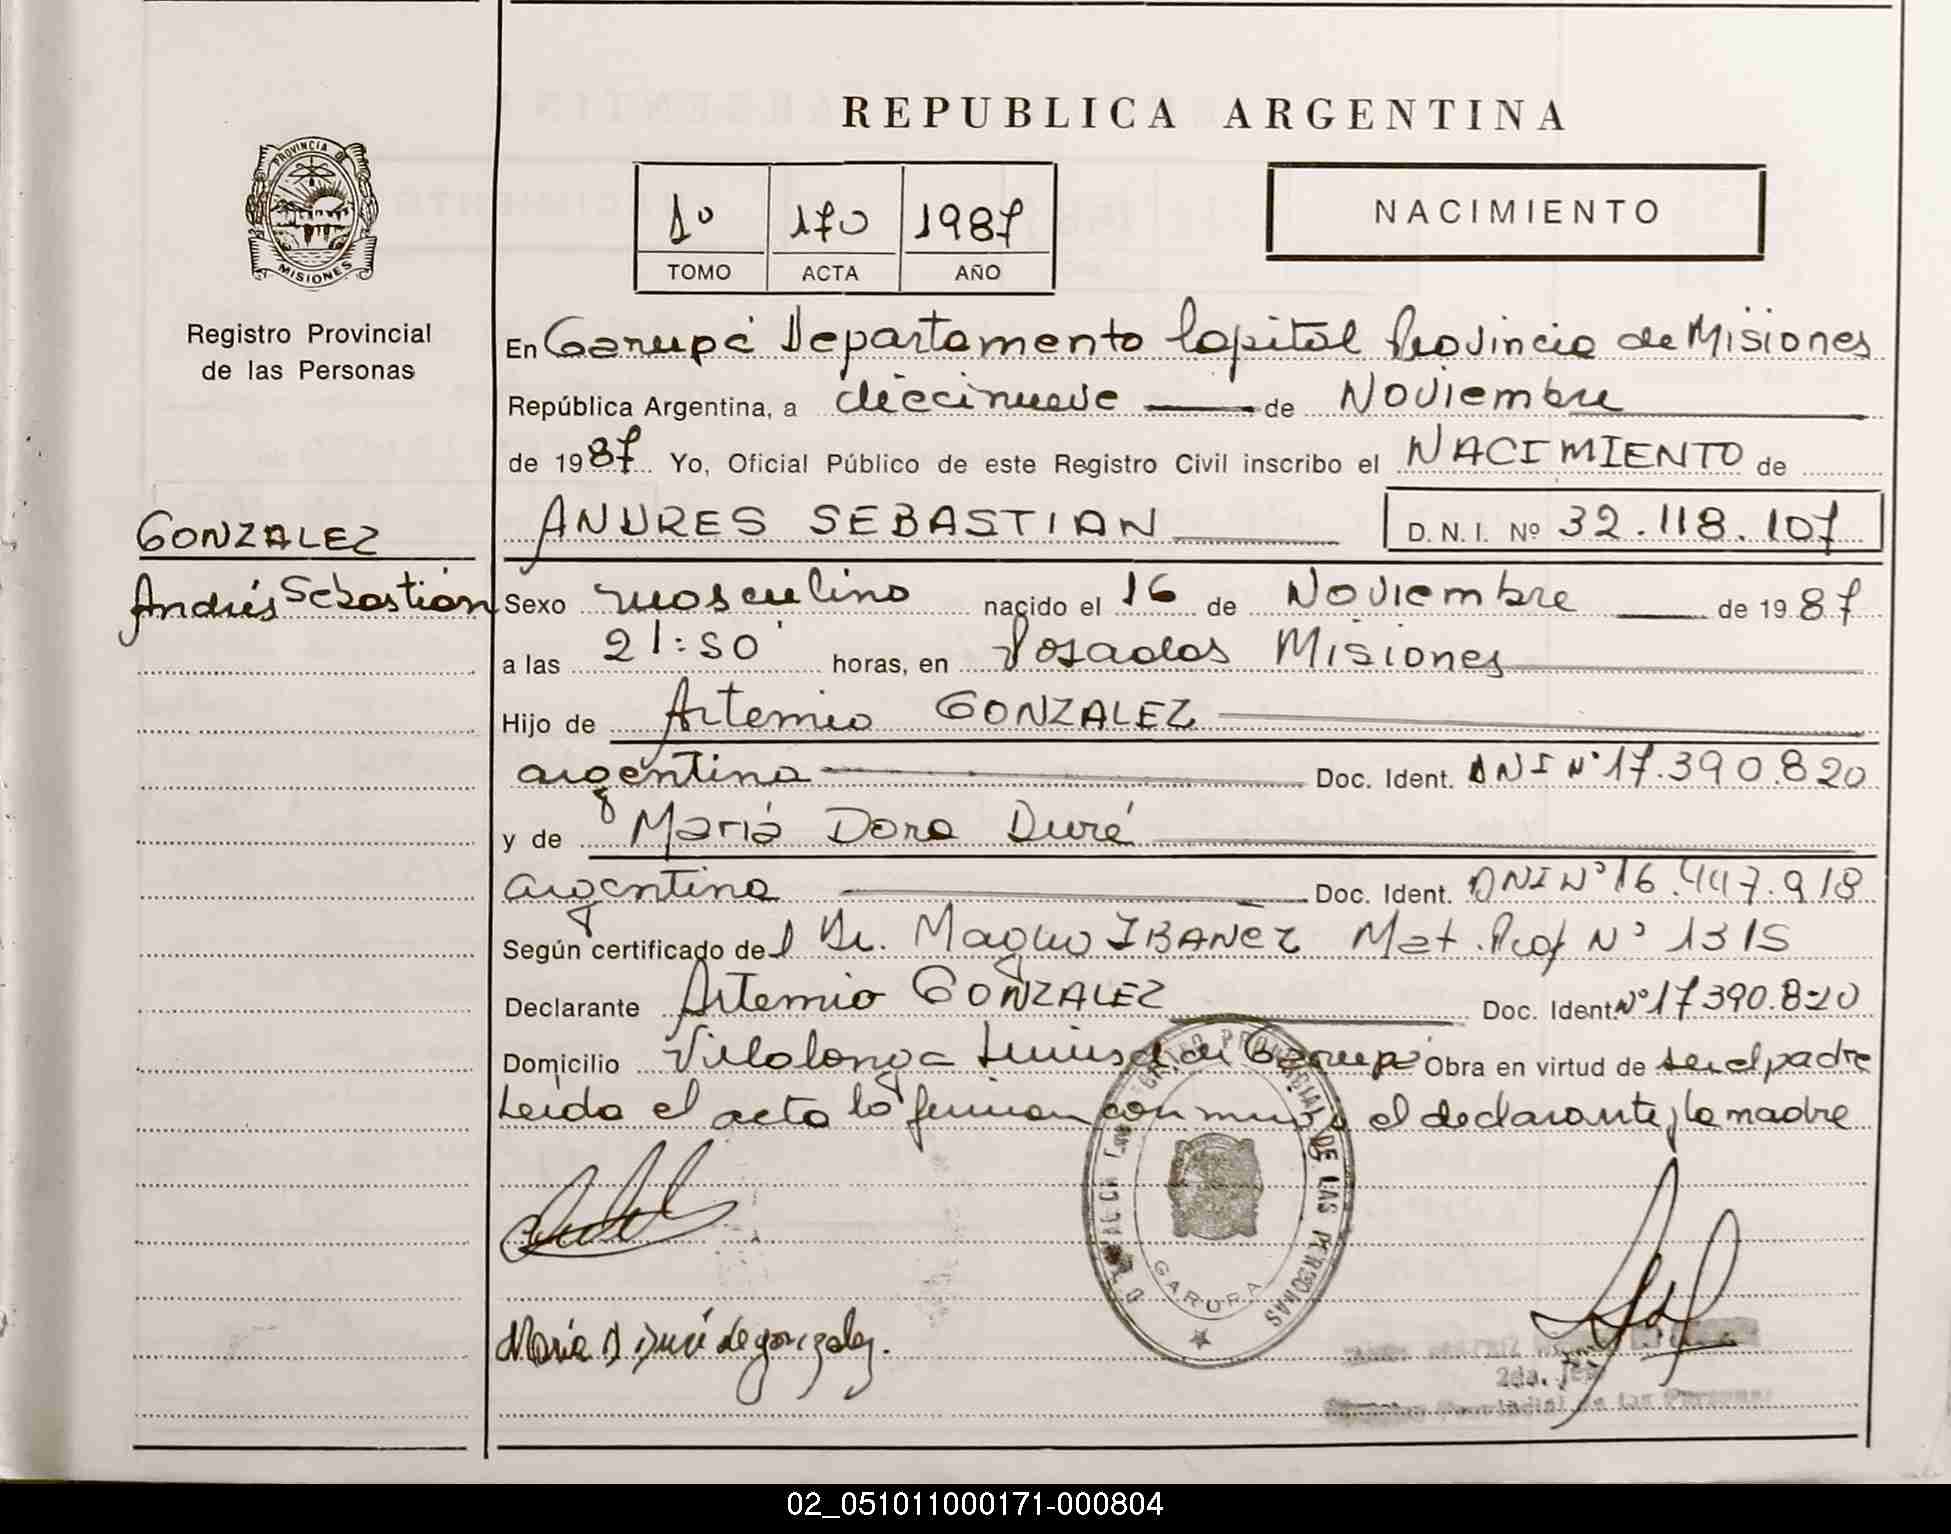 REPUBLICA ARGENTINA
PROVINCIA DE
MISIONES
Registro Provincial
de las Personas
1º 170 1987
TOMO ACTA AÑO
NACIMIENTO
En Garupá Departamento Capital Provincia de Misiones
República Argentina, a diecinueve de Noviembre
de 1987 Yo, Oficial Público de este Registro Civil inscribo el NACIMIENTO de
GONZALEZ
Andrés Sebastián
ANDRES SEBASTIAN D. N. I. Nº 32.118.107
Sexo masculino nacido el 16 de Noviembre de 1987
a las 21:50 horas, en Posadas Misiones
Hijo de Artemio GONZALEZ
argentina Doc. Ident. DNI Nº 17.390.820
y de María Dora Duré
argentina Doc. Ident. DNI Nº 16.447.918
Según certificado del Dr. Magno IBAÑEZ Mat. Prof Nº 1315
Declarante Artemio GONZALEZ Doc. Ident. Nº 17390.820
Domicilio Villalonga de Garupá Obra en virtud de ser el padre
Leída el acta la firman con migo el declarante y la madre
REGISTRO PROVINCIAL DE LAS PERSONAS
GARUPA
María D Duré de gonzalez.
2da. Jefe
Provincial de las Personas
02_051011000171-000804